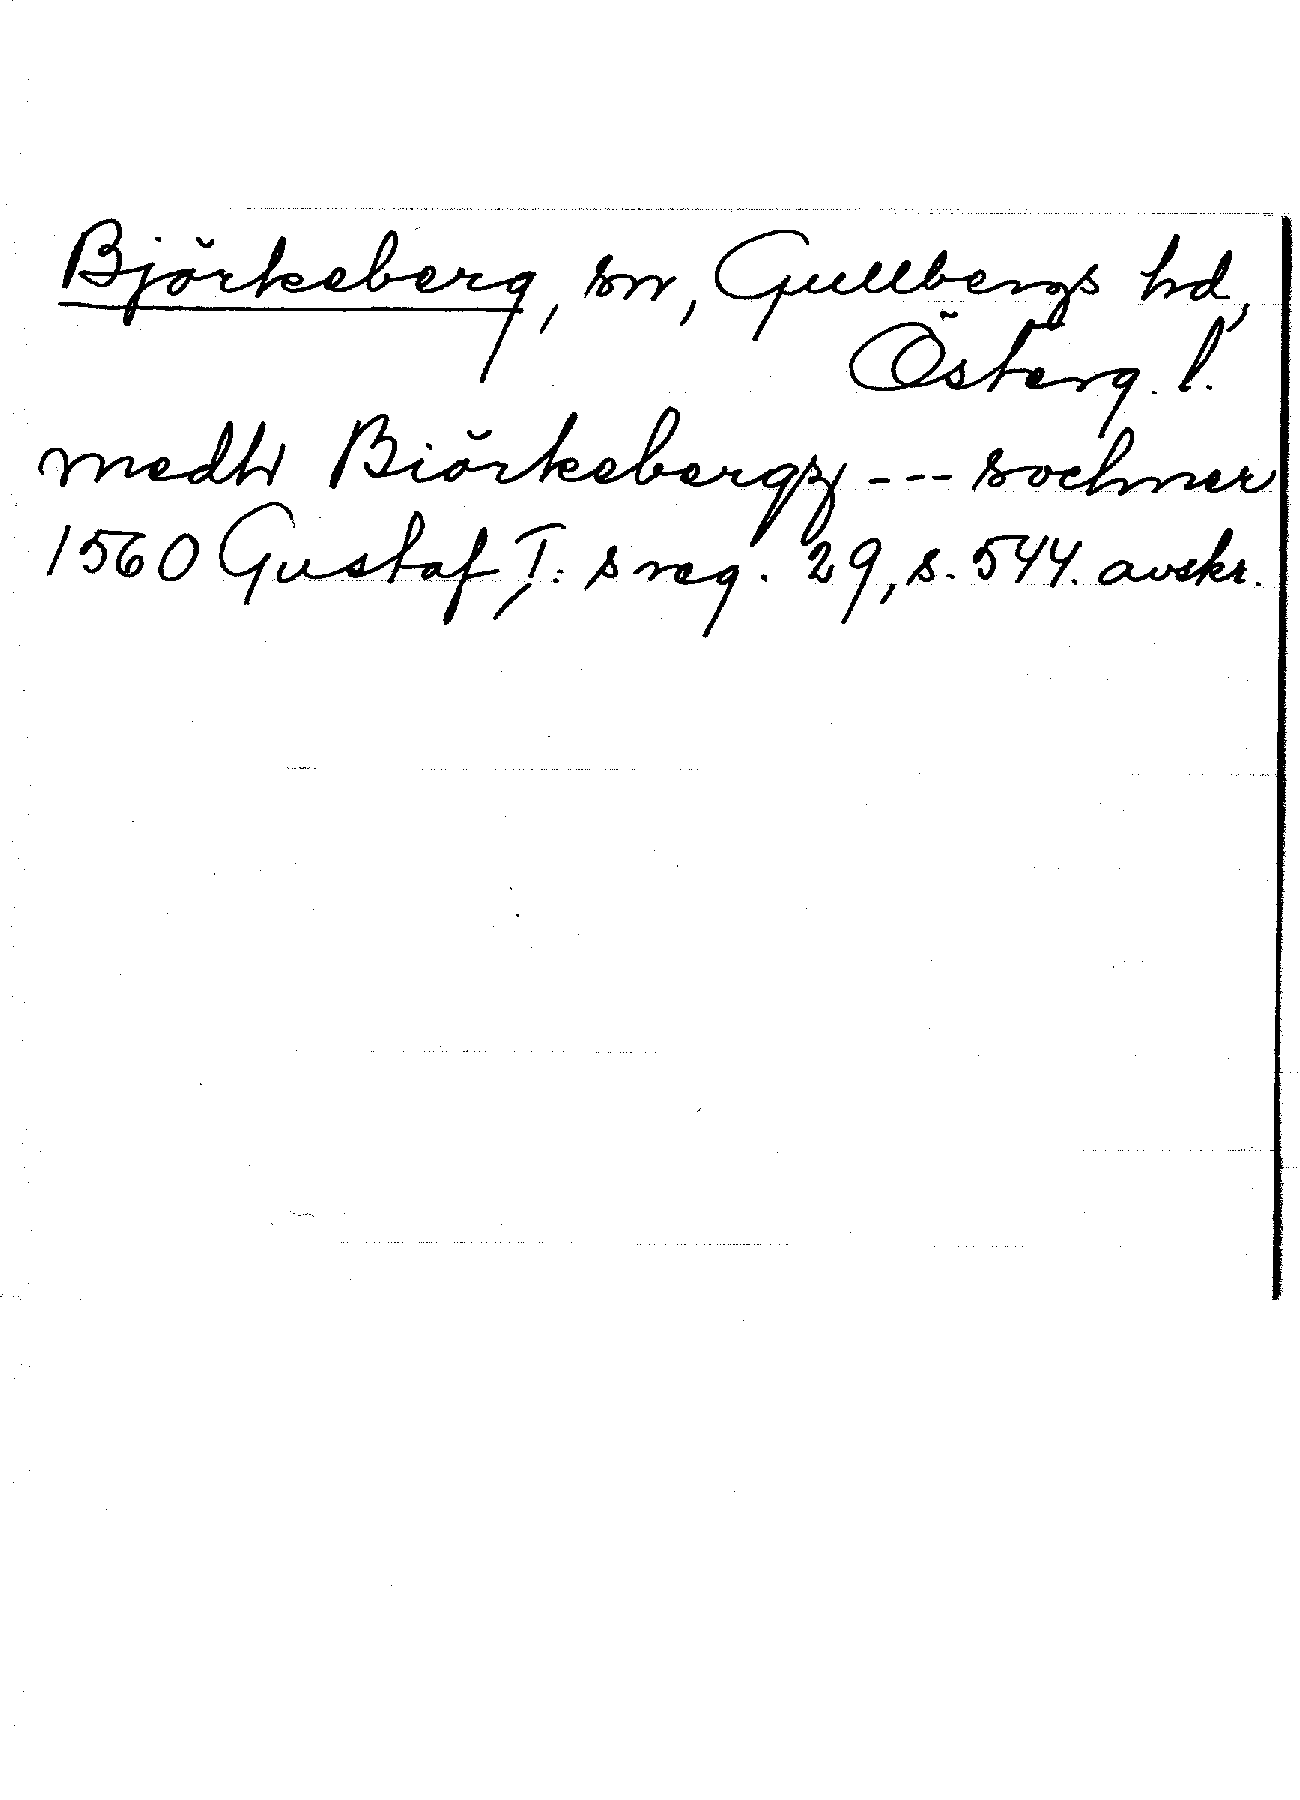 Björkeberg, sn, Gullbergs hd,
Österg. l.
medh Biörkebergz --- sochner
1560 Gustaf I:s reg. 29, s. 544. avskr.